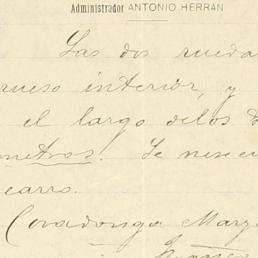 Administrador ANTONIO HERRAN
Las dos rueda
rueso interior, y
el largo delos
metros. Se nese
carro.
Covadonga Marz